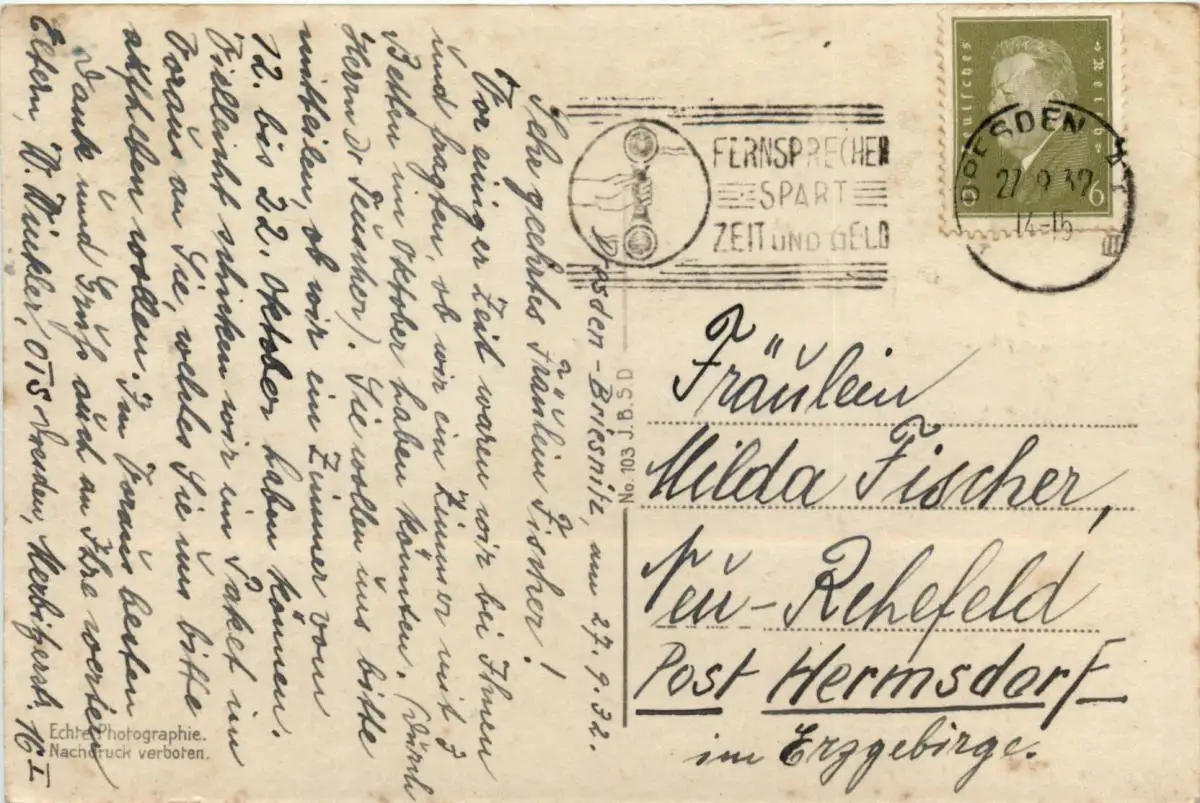 Dresden-Briesnitz, am 27.9.32.
Sehr geehrtes Fräulein Fischer!
Vor einiger Zeit waren wir bei Ihnen
und fragten, ob wir ein Zimmer mit 3
Betten im Oktober haben könnten. (Durch
Herrn Dr Teuscher). Sie wollen uns bitte
mitteilen, ob wir ein Zimmer vom
12. bis 22. Oktober haben können.
Vielleicht schicken wir im Paket im
Voraus an Sie, welches Sie uns bitte
aufheben wollen. Im Voraus besten
Dank und Gruß auch an Ihre werten
Eltern, W. Winkler, Dresden, Merbitzerstr. 16 I
Echte Photographie.
Nachdruck verboten.
No. 103 J.B.S.D
FERNSPRECHER
SPART
ZEIT UND GELD
Deutsches Reich
6 6
DRESDEN
27.9.32
14-15
Fräulein
Milda Fischer,
Neu-Rehefeld
Post Hermsdorf
im Erzgebirge.